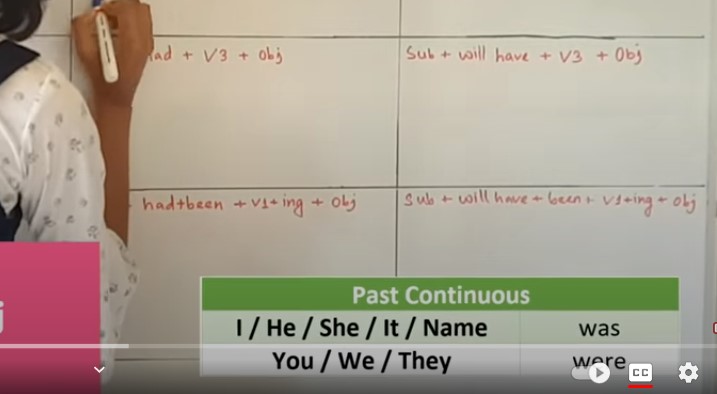 had + V3 + Obj
Sub + will have + V3 + Obj
had+been + V1+ing + Obj
Sub + will have + been + V1+ing + Obj
Past Continuous
I / He / She / It / Name was
You / We / They were
CC